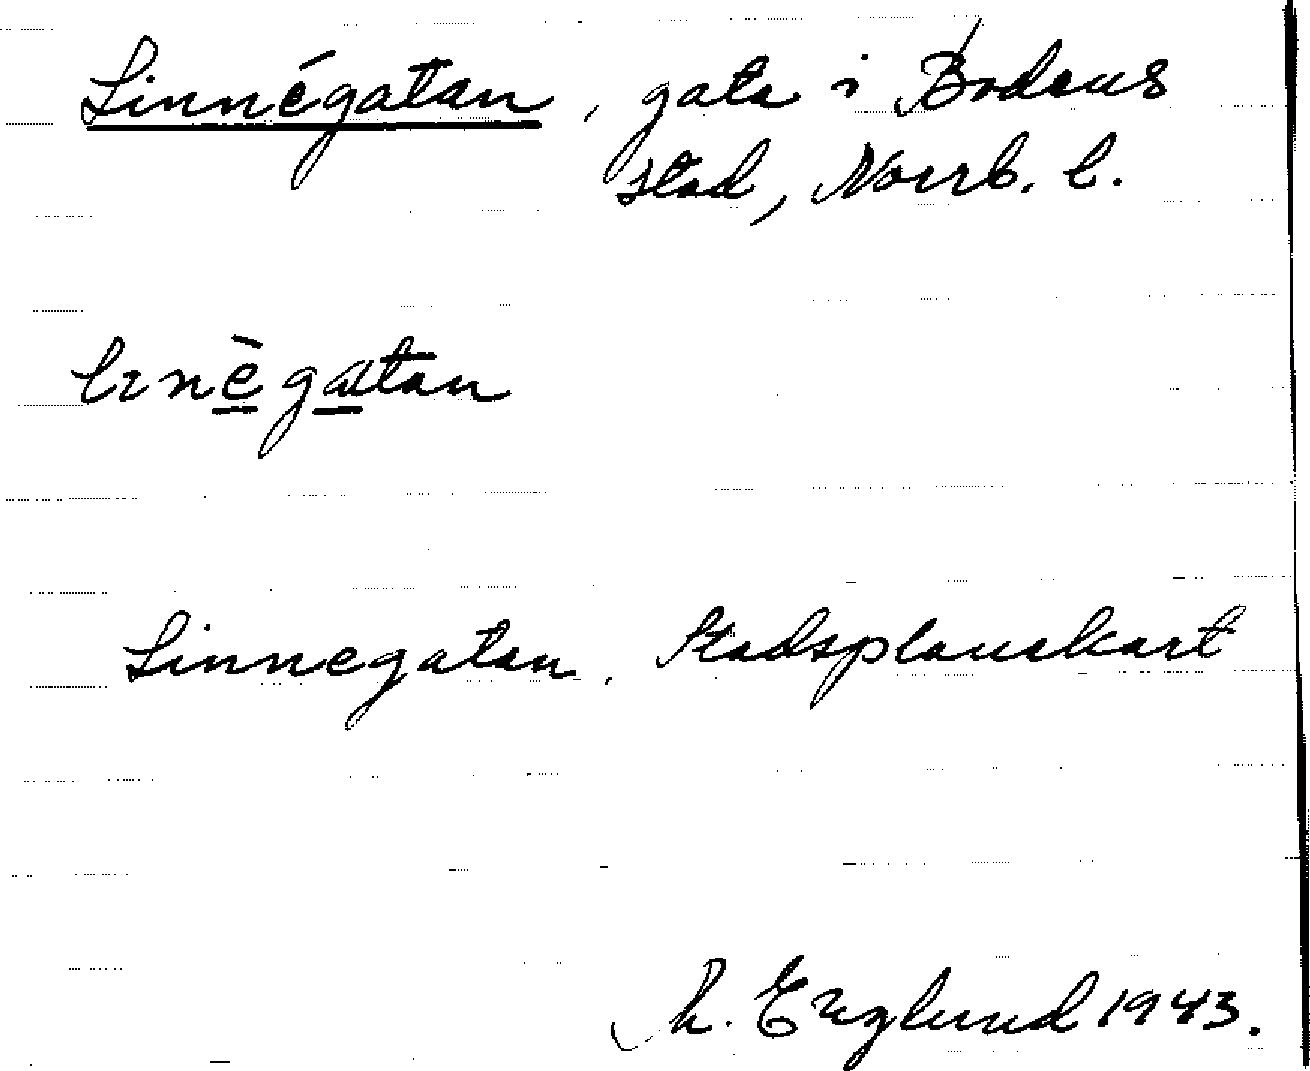 Linnégatan, gata i Bodens
stad, Norrb. l.
linègatan
Linnegatan, Stadsplanekart
R. Englund 1943.